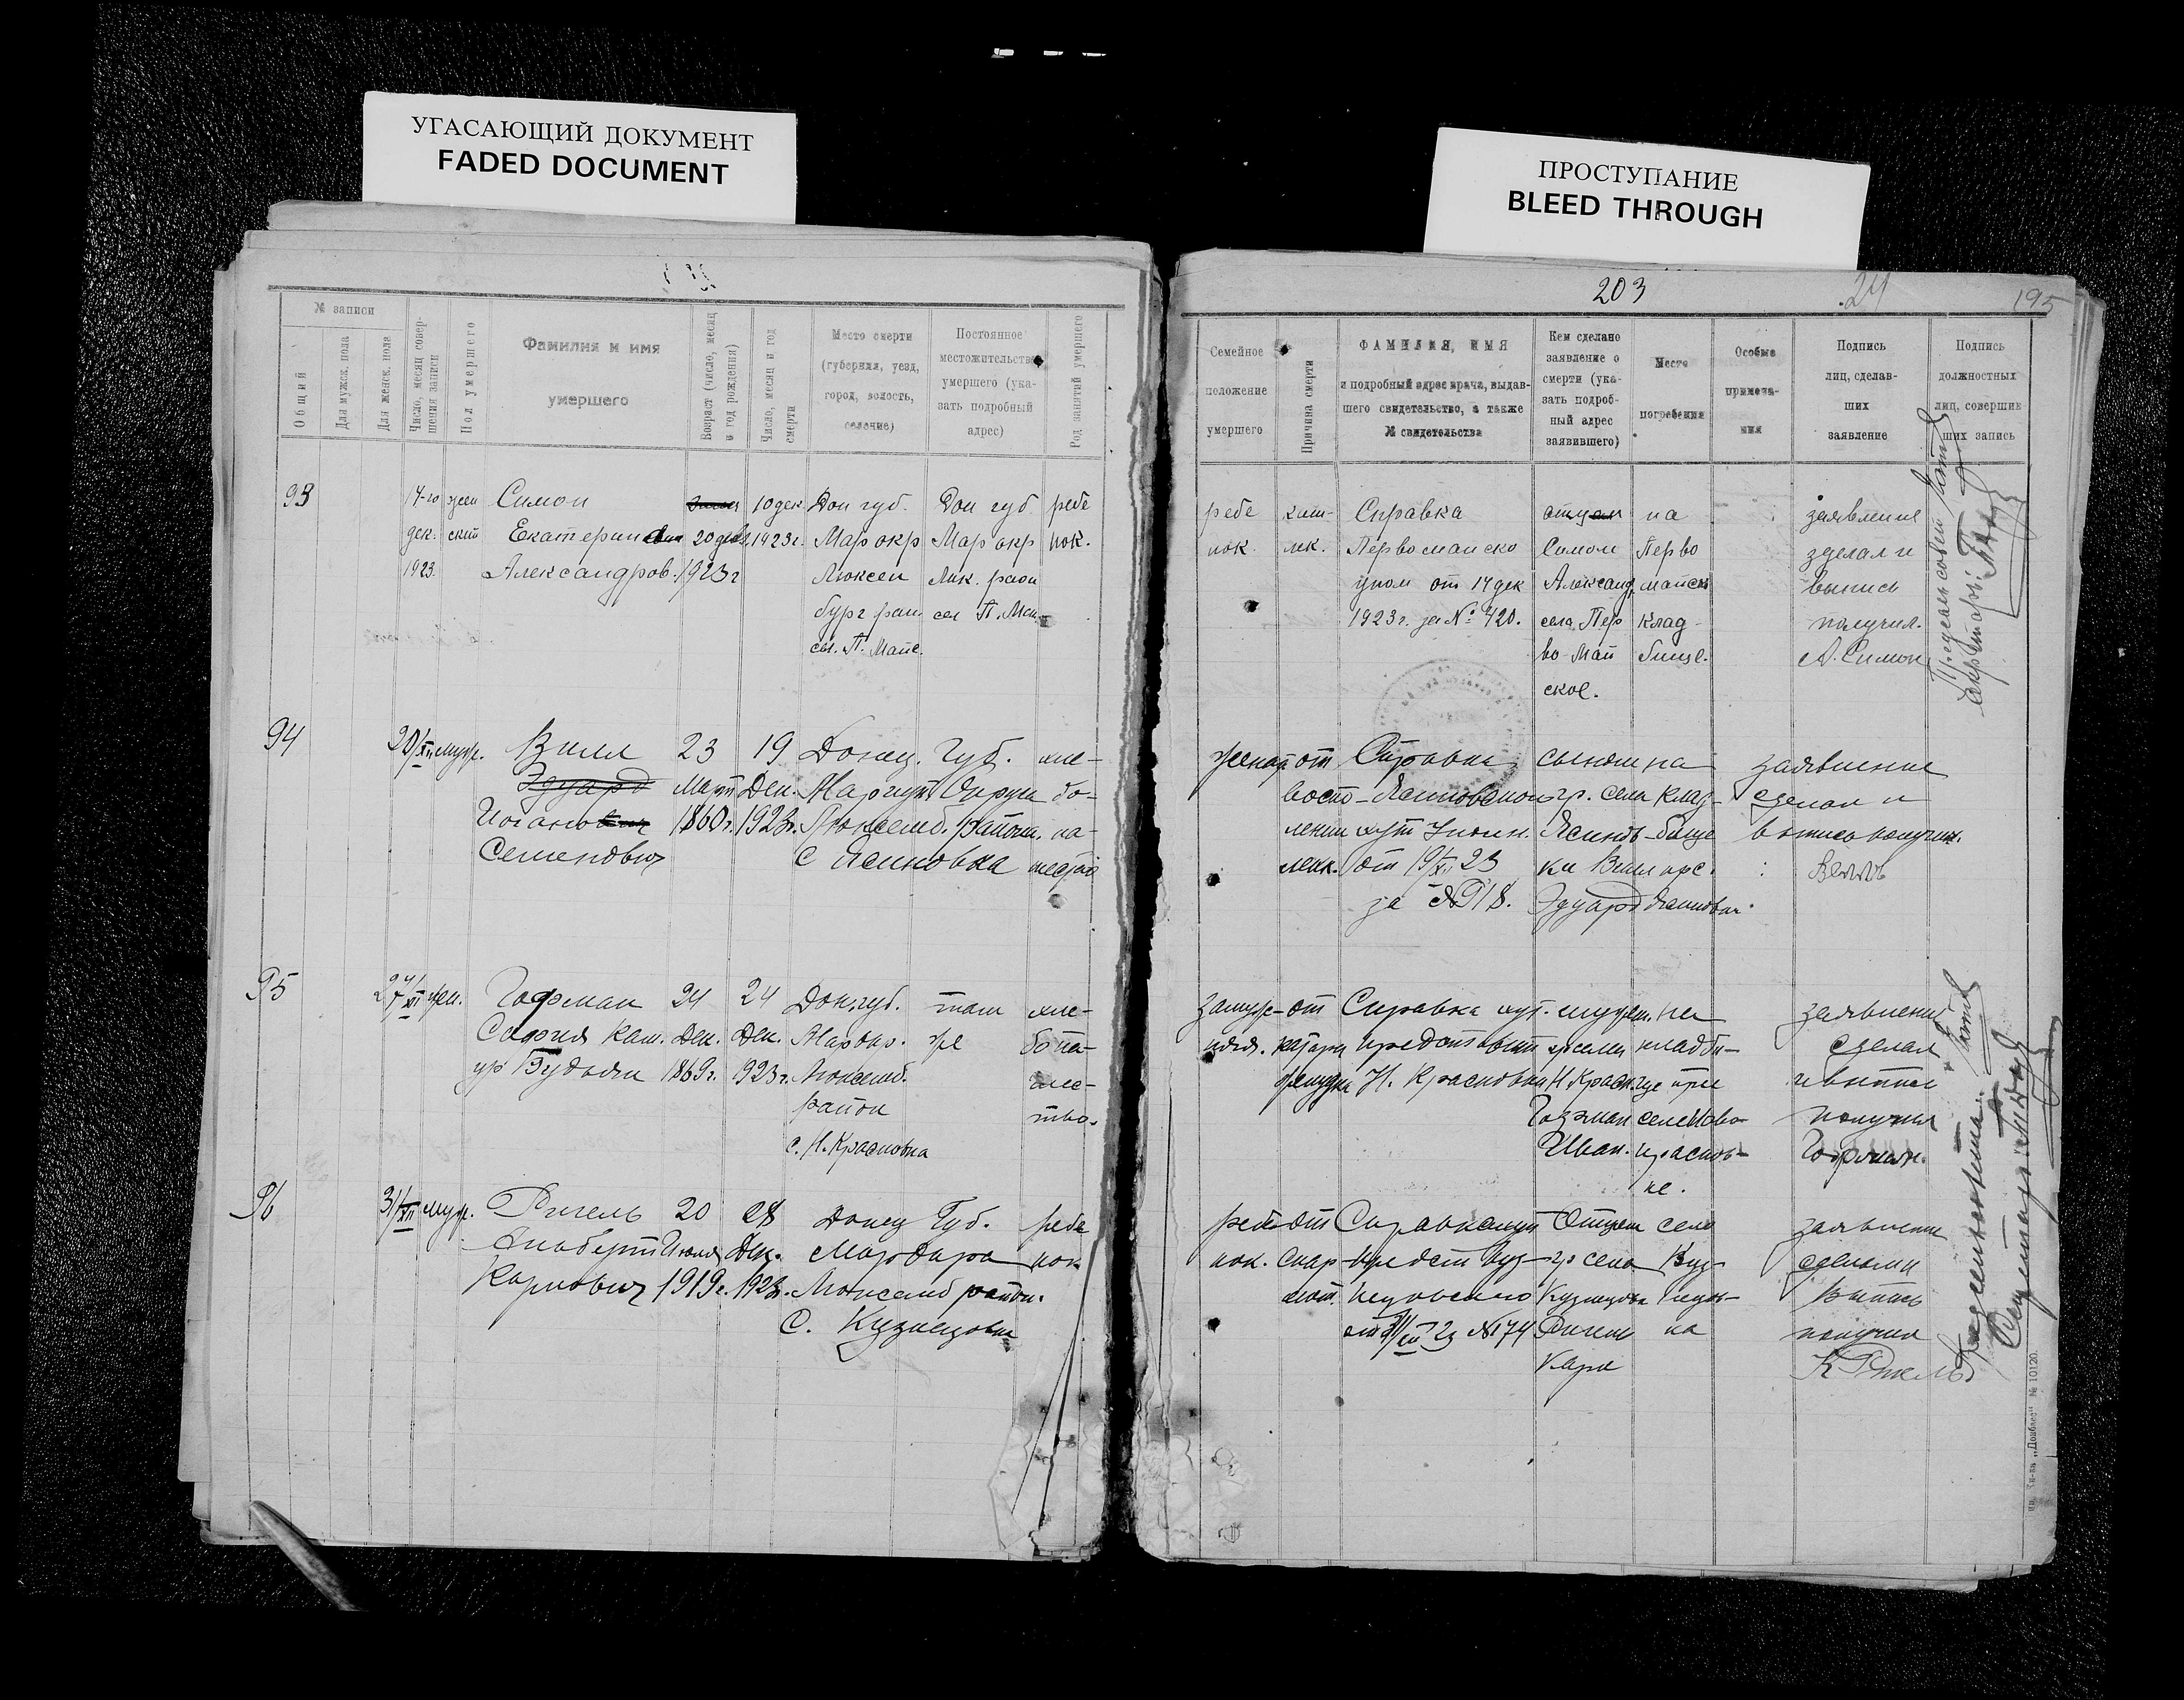 УГАСАЮЩИЙ ДОКУМЕНТ
FADED DOCUMENT
ПРОСТУПАНИЕ
BLEED THROUGH
№ записи
Общий
Для мужск. пола
Для женск. пола
Число, месяц совер-
шения записи
Пол умершего
Фамилия и имя
умершего
Возраст (число, месяц
и год рождения)
Число, месяц и год
смерти
Место смерти
(губерния, уезд,
город, волость,
селение)
Постоянное
местожительство
умершего (ука-
зать подробный
адрес)
Род занятий умершего
93
14-го
дек.
1923.
жен
ский
Симон
Екатерина
Александров.
20 дек.
1923 г
10 дек
1923 г.
Дон губ.
Мар окр
Люксем
бург раи.
сел. П. Майс.
Дон губ
Мар окр
Люк. раои
сел П. Май.
ребе
нок.
94
20/XII
муж.
Вилл
Эдуард
Иоган
Семенович
23
Март
1860 г.
19
Дек.
1923 г.
Донец. Губ.
Мариуп. Округа
Люксемб. района.
с Ясиновка
хле-
бо-
па-
95
27/XII
жен.
Гофман
София Кат.
24
Дек.
1869 г.
24
Дек.
1923 г.
Дон. губ.
Мар окр.
Люксемб.
район
с. Н. Красновка
там
же
хле-
бопа-
ше-
тво.
96
31/XII
муж.
Ригель
Альберт
Карлович
20
Июля
1919 г.
28
Дек.
1923.
Донец Губ.
Мар Окра
Люксемб район.
С. Кузнецовка
ребе
нок
203
24
195
Семейное
положение
умершего
Причина смерти
ФАМИЛИЯ, ИМЯ
и подробный адрес врача, выдав-
шего свидетельство, а также
№ свидетельства
Кем сделано
заявление о
смерти (ука-
зать подроб-
ный адрес
заявившего)
Место
погребения
Особые
примеча-
ния
Подпись
лиц, сделав-
ших
заявление
Подпись
должностных
лиц, совершив-
ших запись
ребе
нок.
каш-
лек.
Справка
Первомайско
от 14 дек
1923 г. за № 420.
отцом
Симон
Александ.
села Пер
во Май
ское.
на
Перво
майск
клад-
бище.
заявление
зделал и
выпись
получил.
А. Симон
женат
от
воспа-
ления
легк.
Справка
Ясиновской
от 19/XII 23
за № 918.
сыном
гр. села
Ясинов-
ки Вилл
Эдуард
на
клад-
бище
заявление
сделал и
выпись получил.
Вилль
замуж-
няя.
от
катара
желудка
Справка хут.
представит
Н. Красновка
мужем.
гр села
Н Красн.
Гофман
Иван.
на
кладби-
ще при
селе Ново-
краснов-
ке.
заявление
сделал
и выпись
получил
Гофман.
ребе-
нок.
от
скар-
лат.
Справка хут
предст Куз-
нецовского
от 31/XII 23 № 174
Отцом
гр села
Кузнецовка
Ригель
Карл
село
Куз-
нецов-
ка
заявление
сделал и
выпись
получил
К Ригель
Секретарь:
тип. Кн-ва „Донбасс" № 10120.